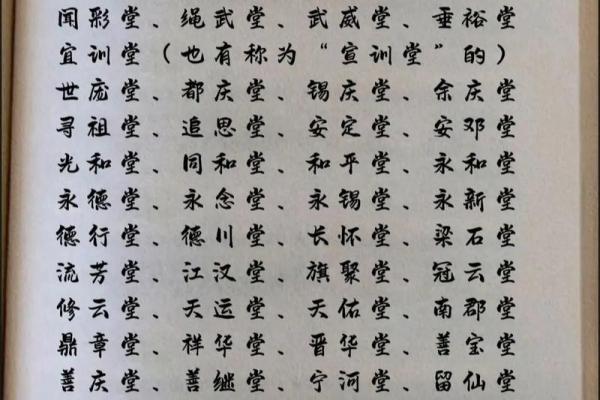 闻彩堂、绳武堂、武威堂、垂裕堂
宜训堂（也有称为“宣训堂”的）
世庞堂、都庆堂、锡庆堂、余庆堂
寻祖堂、追思堂、安定堂、安邓堂
光和堂、同和堂、和平堂、永和堂
永德堂、永念堂、永锡堂、永新堂
德行堂、德川堂、长怀堂、梁石堂
流芳堂、江汉堂、旗聚堂、冠云堂
修云堂、天运堂、天佑堂、南郡堂
鼎章堂、祥华堂、晋华堂、善宝堂
善庆堂、善继堂、宁河堂、留仙堂